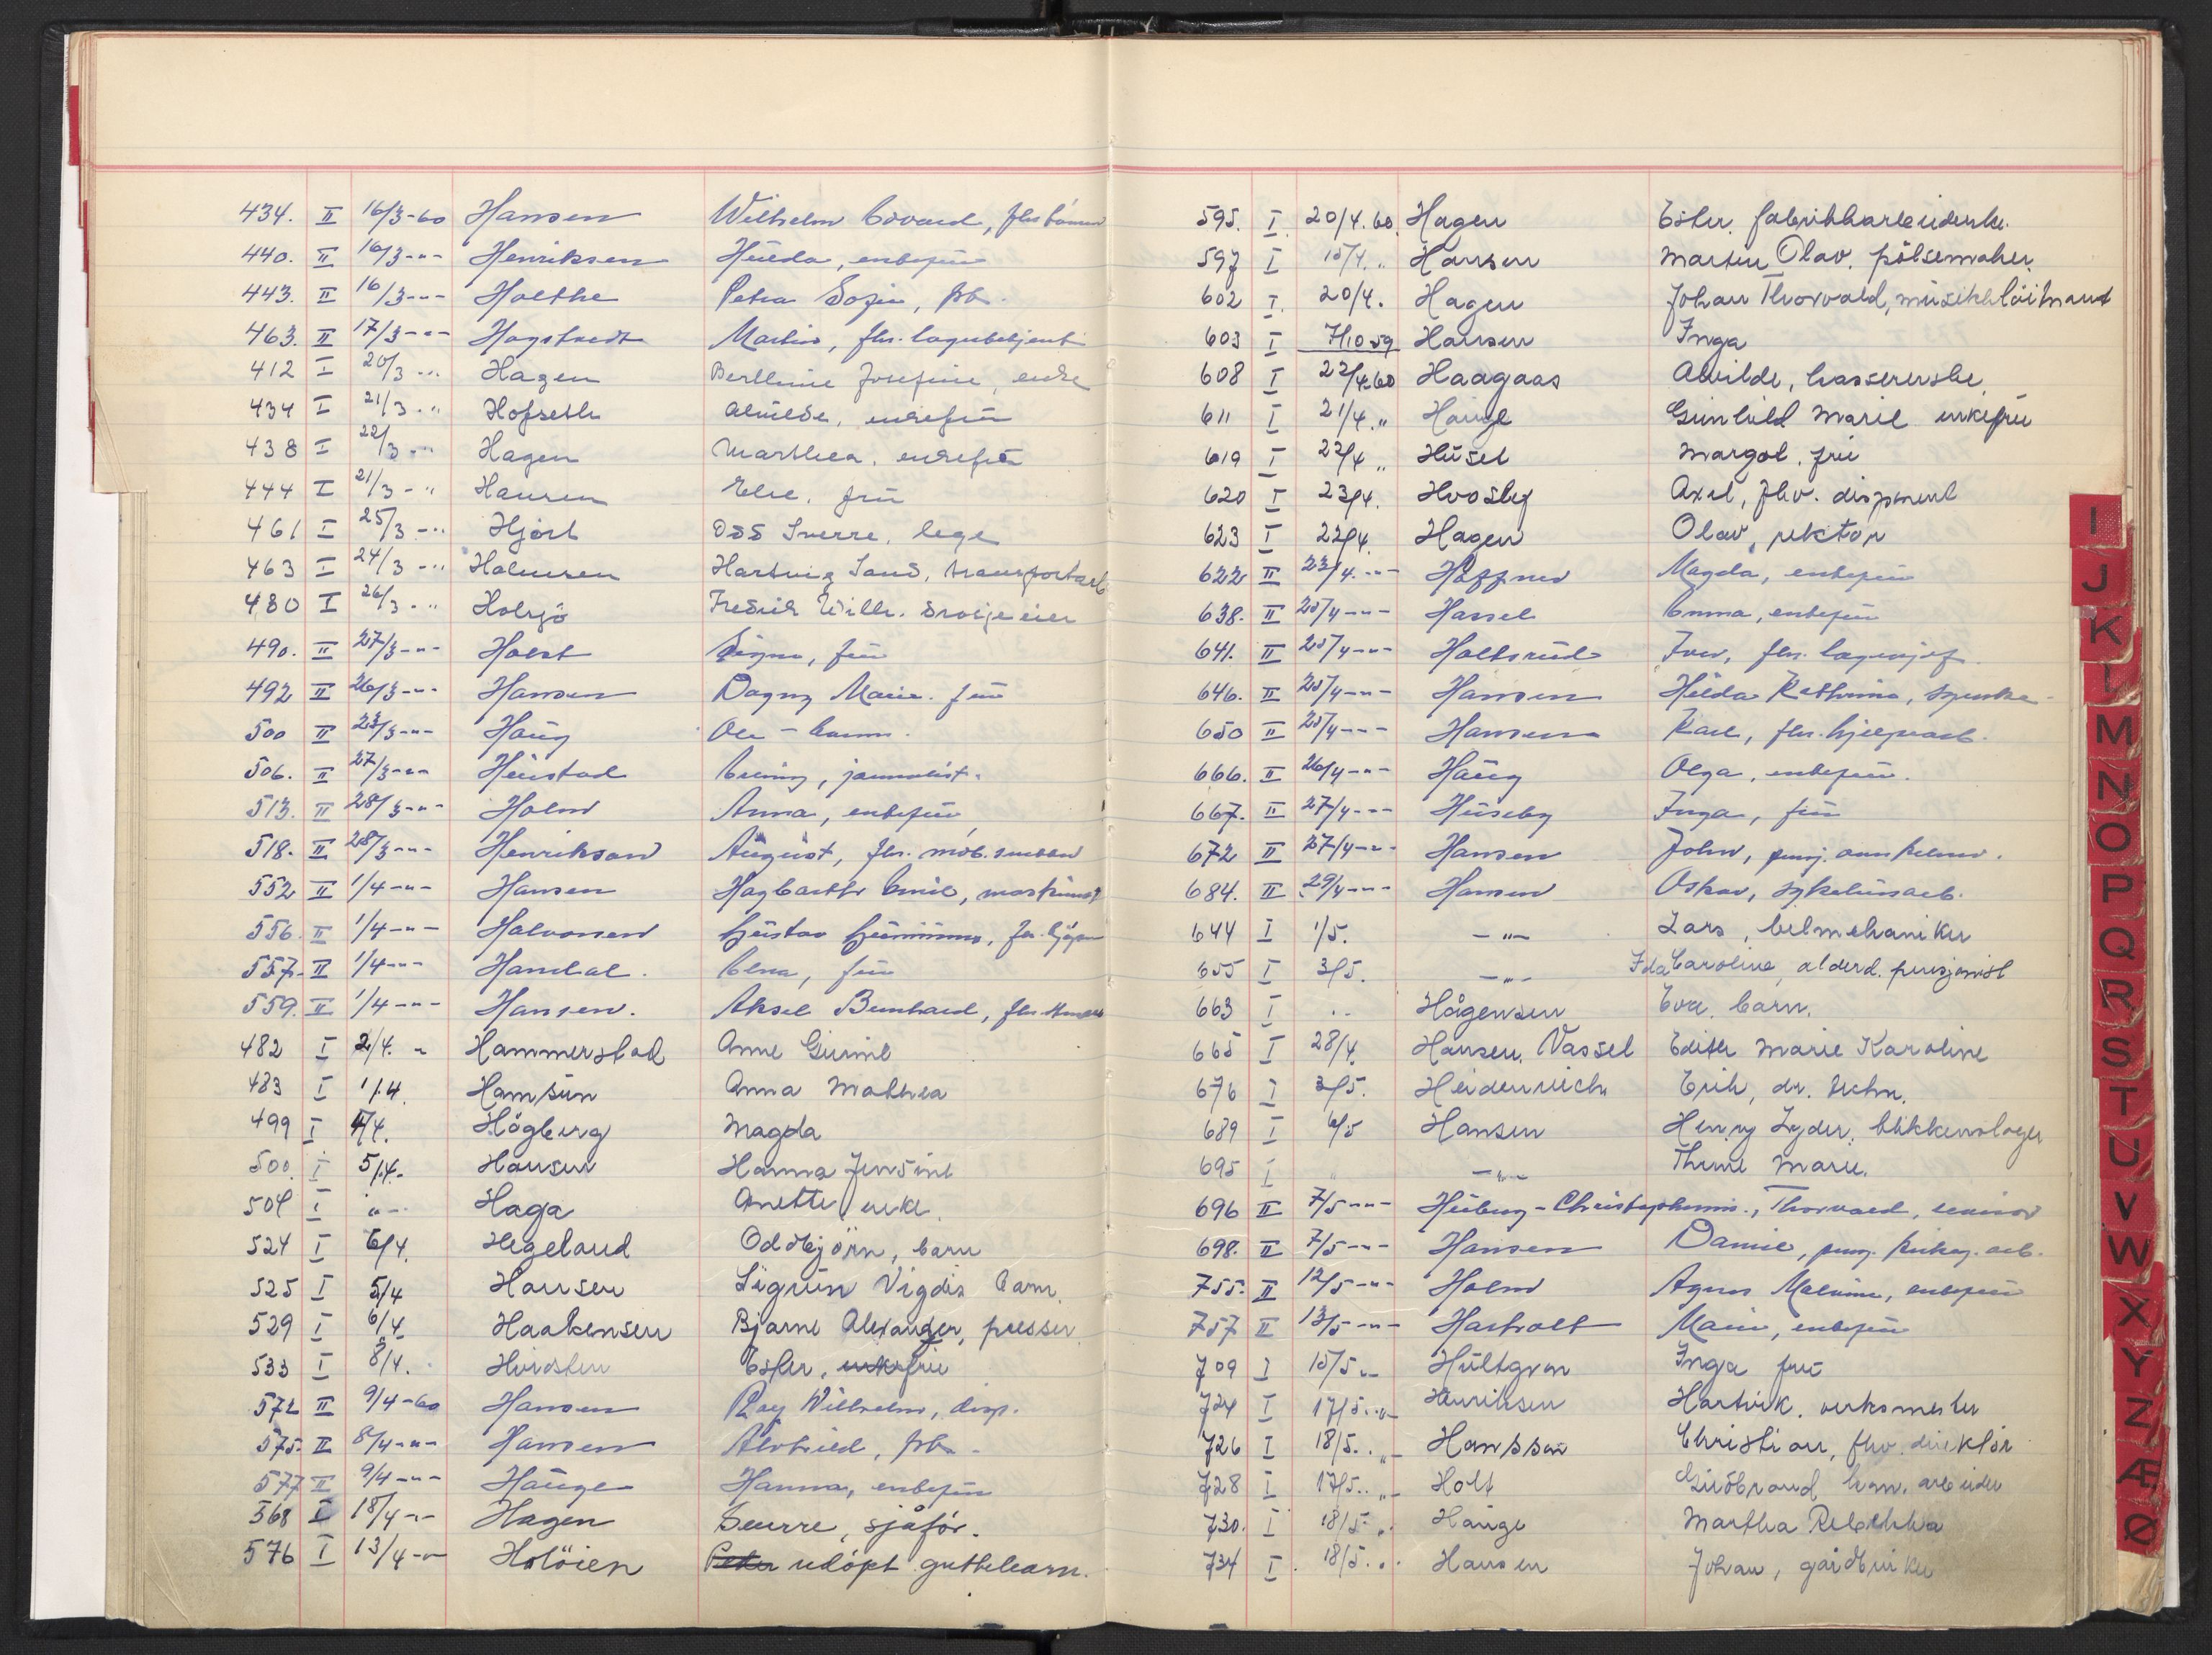 434. II 16/3-60 Hansen Wilhelm Edvard,
440. II 16/3-"- Henriksen Hulda, enkefru
443. II 16/3-"- Holthe Petra Sofie, frk.
463. II 17/3-"- Hagstvedt Martin, fhv. lagerbetjent
412 I 20/3 -"- Hagen Berthine Josefine, enke
434 I 21/3 -" Hofseth Alvilde, enkefru
438 I 22/3 -"- Hagen Marthea, enkefru
444 I 21/3 -" Hansen Else, fru
461 I 25/3 -"- Hjort Odd Sverre, lege
463 I 24/3 -"- Halvorsen Hartvig Sand, transportarb.
480 I 26/3 -" Holsjö Fredrik Wilh. drosjeeier
490. II 27/3-"- Holst Signe, fru
492 II 26/3-"- Hansen Dagny Marie. fru
500 II 23/3-"- Haug Ole - barn.
506. II 27/3-"- Heistad Erling, journalist.
513. II 28/3-"- Holm Anna, enkefru
518. II 28/3-"- Henrikson August, fhv. møb. snekker
552 II 1/4-"- Hansen Hagbarth Emil, maskinist
556. II 1/4-"- Halvorsen Gustav
557. II 1/4-"- Hamdal. Elna, fru
559. II 1/4-"- Hansen. Aksel Bernhard, fhv.
482 I 2/4. " Hammerstad Anne Gurine
483 I 1/4. Hamsun Anna Mathea
499 I 4/4. Högberg Magda
500. I 5/4.- Hansen Hanna Jensine
504 I "- Haga Anette, enke.
524 I 6/4. Hegeland Oddbjörn, barn
525 I 5/4 Hansen Sigrun Vigdis barn.
529 I 6/4 Haakensen Bjarne Alexander, presser
533 I 8/4. Hvidsten Ester, enkefru
572 II 9/4-60 Hansen Roy Wilhelm, disp.
575. II 8/4-"- Hansen Alvhild, frk.
577 II 9/4-"- Hauge Hanna, enkefru
568 I 18/4-"- Hagen Sverre, sjåför.
576 I 13/4-"- Holöien Peter udöpt guttebarn.
595. I. 20/4.60. Hagen Ester, fabrikkarbeiderske.
597 I 15/4. " Hansen Martin Olav. pölsemaker.
602 I. 20/4. Hagen Johan Thorvald, musikklöitnant
603 I 7/10 59 Hansen Inga
608 I 22/4.60 Haagaas Alvilde, kassererske
611 I 21/4." Hauge Gunhild Marie enkefru
619 I 22/4 " Huset Margot. fru
620 I 23/4. Hvosley Axel, fhv. disponent
623 I 22/4. Hagen Olav, rektor
622 II 23/4.-"- Höffner Magda, enkefru
638. II 25/4-"- Hassel Emma, enkefru
641. II 25/4-"- Holtsrud Iver, fhv. lagersjef
646. II 25/4-"- Hansen Hilda Kathrine,
650 II 25/4-"- Hansen Karl, fhv. hjelpearb.
666. II 26/4-"- Haug Olga, enkefru.
667. II 27/4-"- Huseby Inga, fru
672 II 27/4-"- Hansen John,
684. II 29/4-"- Hansen Oskar,
644 I 1/5. -"- Lars, bilmekaniker
655 I 3/5. -"- Ida Caroline, alderd. pensjonist
663 I " Hågensen Eva. barn.
665 I 28/4. Hansen Vassel Edith Marie Karoline
676 I 3/5. Heidenreich Erik, dr. techn.
689 I 6/5 Hansen Henry Lyder, blikkenslager
695 I " -"- Thine Marie.
696 II 7/5-"- Huberg-Christophersen., Thorvald, senior
698. II 7/5-"- Hansen Daniel,
755. II 12/5-"- Holm Agnes Malvine, enkefru
757 II 13/5-"- Hartvolt Marie, enkefru
709 I 15/5 "- Hultgren Inga fru
724 I 17/5. "- Henriksen Hartvik. verksmester
726 I 18/5. "- Hansson Christian, fhv. direktör
728 I 17/5. "- Holt Gudbrand kom. arbeider
730. I 18/5 " Hauge Martha Rebekka
734 I 18/5. " Hansen Johan, gårdbruker
I
J
K
L
M
N
O
P
Q
R
S
T
U
V
W
X
Y
Z
Æ
Ø